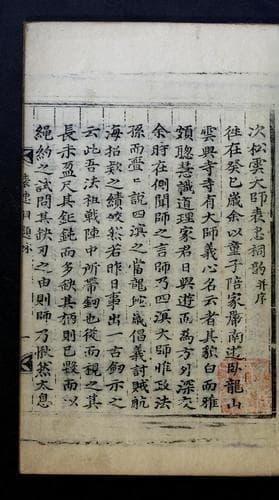 次松雲大師表忠詞韵 并序
往在癸巳歲余以童子陪家席南遊卧龍山
雲興寺寺有大師義心名云者其貌白而雅
頎聰慧識道理家君日與遊而為方外深交
余時在側聞師之言師乃四溟大師惟政法
孫而亹亹說四溟之當龍蛇歲倡義討賊航
海招歎之績皎然若昨日事出一古劒示之
云此吾法祖戰陣中所帶劒也從而視之其
長未盈尺其鉅鈍而多缺其柄則已毀而以
繩約之試問其缺刃之由則師乃愀然太息